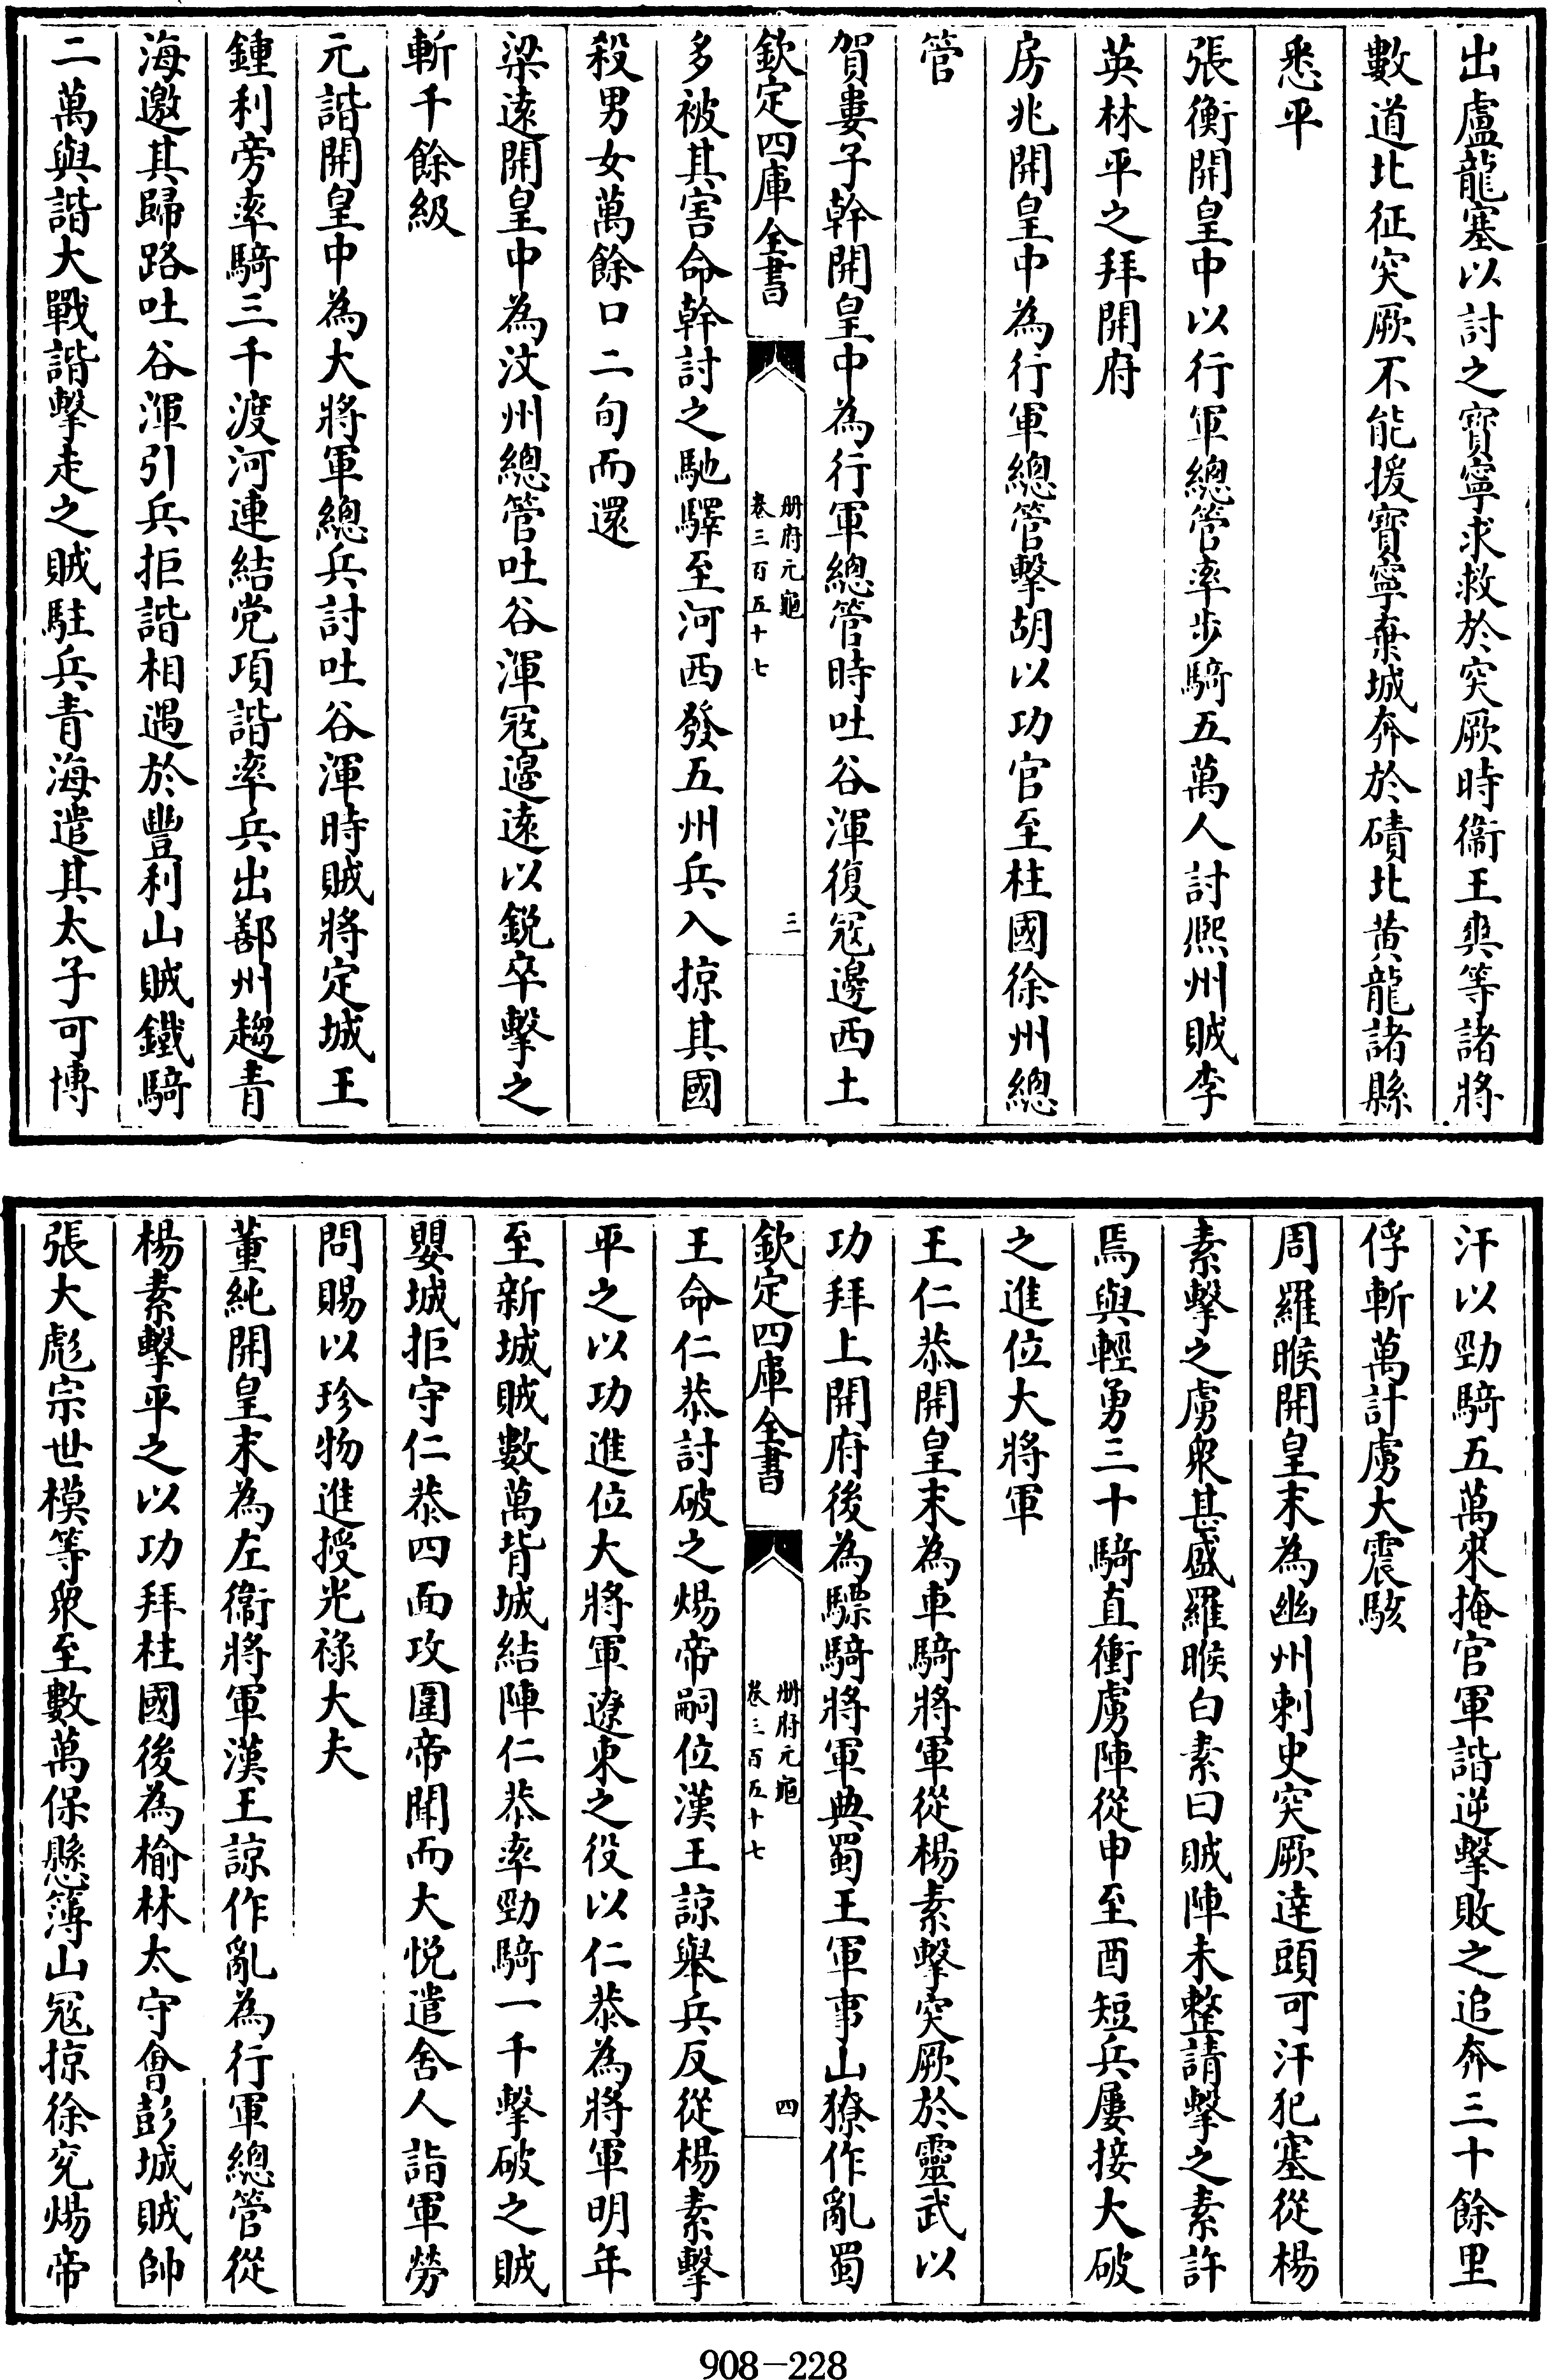 出盧龍塞以討之寳寧求救於突厥時衞王爽等諸將
數道北征突厥不能援寳寧棄城奔於磧北黄龍諸縣
悉平
張衡開皇中以行軍總管率步騎五萬人討熙州賊李
英林平之拜開府
房兆開皇中為行軍總管擊胡以功官至柱國徐州總
管
賀婁子幹開皇中為行軍總管時吐谷渾復冦邊西土
欽定四庫全書
册府元龜
卷三百五十七
三
多被其害命幹討之馳驛至河西發五州兵入掠其國
殺男女萬餘口二旬而還
梁逺開皇中為汶州總管吐谷渾冦邊逺以鋭卒擊之
斬千餘級
元諧開皇中為大將軍總兵討吐谷渾時賊將定城王
鍾利旁率騎三千渡河連結党項諧率兵出鄯州趨青
海邀其歸路吐谷渾引兵拒諧相遇於豐利山賊鐵騎
二萬與諧大戰諧擊走之賊駐兵青海遣其太子可博
汗以勁騎五萬來掩官軍諧逆擊敗之追奔三十餘里
俘斬萬計虜大震駭
周羅睺開皇末為幽州刺史突厥達頭可汗犯塞從楊
素擊之虜衆甚盛羅睺白素曰賊陣未整請擊之素許
焉與輕勇三十騎直衝虜陣從申至酉短兵屢接大破
之進位大將軍
王仁恭開皇末為車騎將軍從楊素擊突厥於靈武以
功拜上開府後為驃騎將軍典蜀王軍事山獠作亂蜀
欽定四庫全書
册府元龜
卷三百五十七
四
王命仁恭討破之煬帝嗣位漢王諒舉兵反從楊素擊
平之以功進位大將軍遼東之役以仁恭為將軍明年
至新城賊數萬背城結陣仁恭率勁騎一千擊破之賊
嬰城拒守仁恭四面攻圍帝聞而大悦遣舍人詣軍勞
問賜以珍物進授光祿大夫
董純開皇末為左衞將軍漢王諒作亂為行軍總管從
楊素擊平之以功拜柱國後為榆林太守會彭城賊帥
張大彪宗世模等衆至數萬保懸簿山冦掠徐兖煬帝
908-228